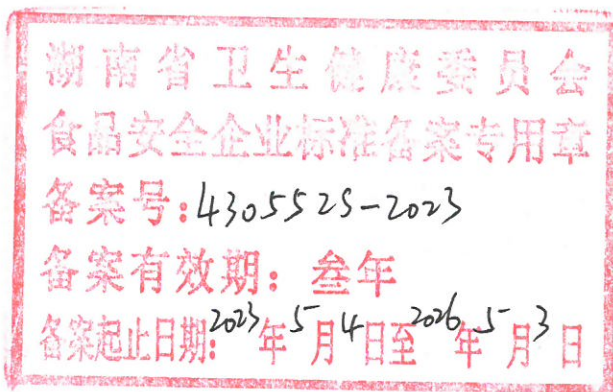 湖南省卫生健康委员会
食品安全企业标准备案专用章
备案号:4305525-2023
备案有效期:叁年
备案起止日期:2023年5月4日至2026年5月3日